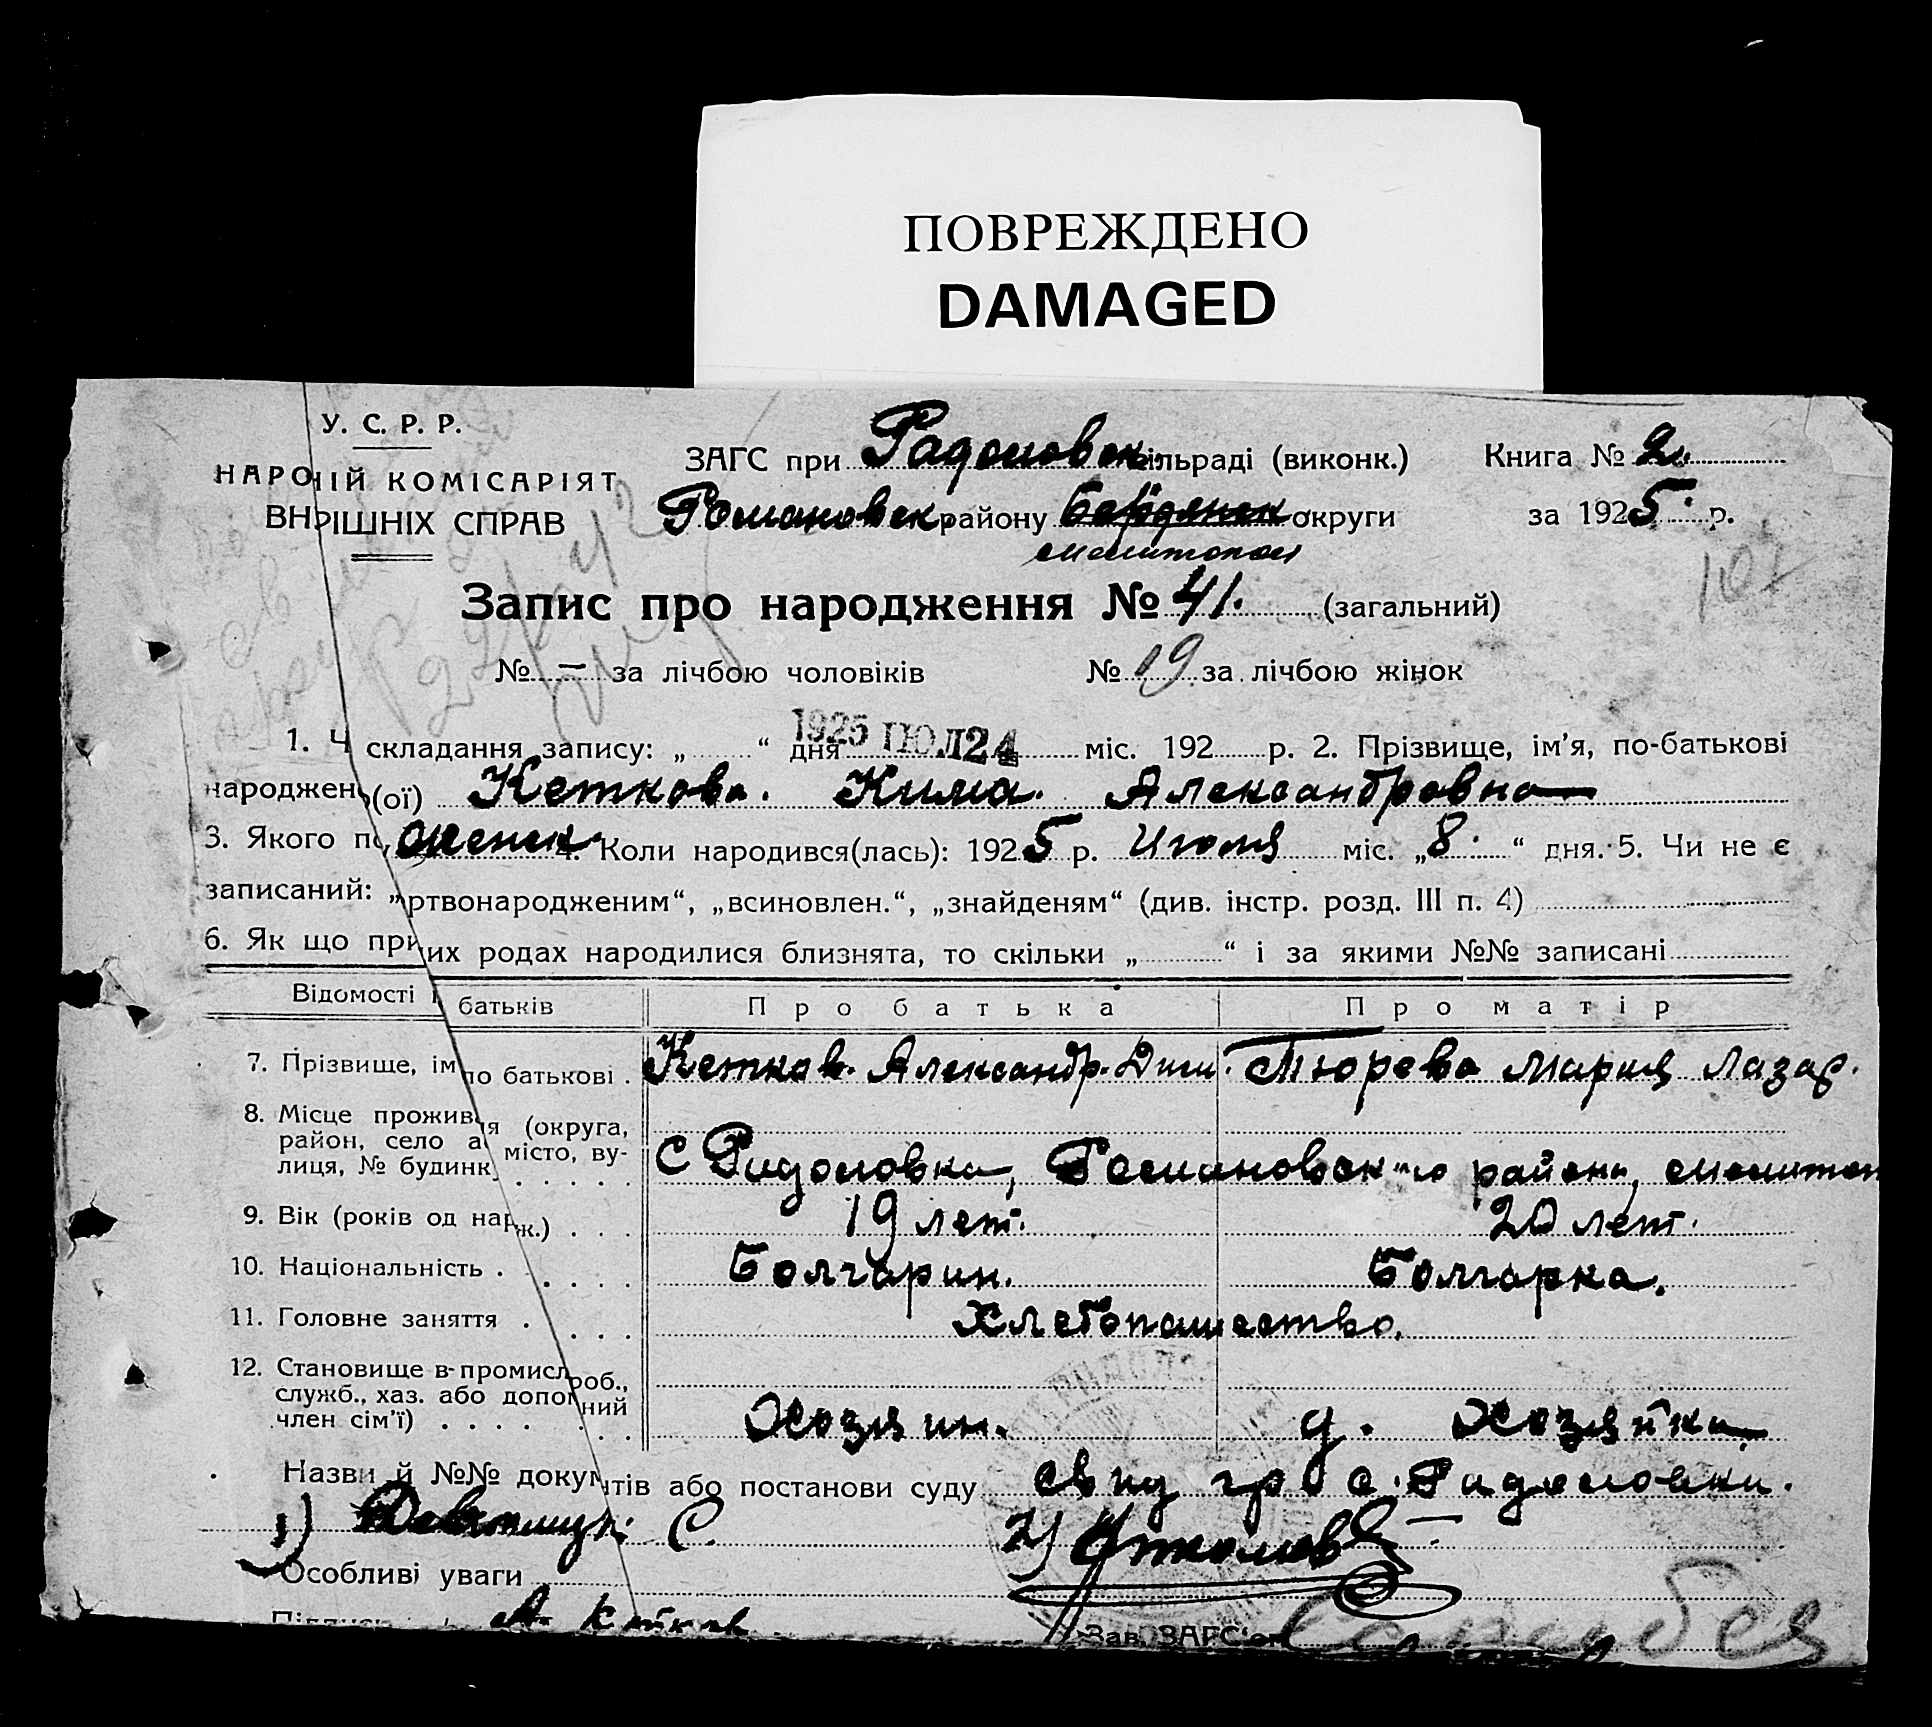 ПОВРЕЖДЕНО
DAMAGED
У. С. Р. Р.
НАРО ІЙ КОМІСАРІЯТ
ВН РІШНІХ СПРАВ
ЗАГС при Радоловск. ільраді (виконк.) Книга № 2.
Романовск. району Бердянск округи за 1925 р.
мелитопол
Запис про народження № 41. (загальний)
№ — за лічбою чоловіків № 19 за лічбою жінок
107
1. Ч складання запису: „ “ дня 1925 ІЮЛ 24 міс. 192 р. 2. Прізвище, ім’я, по-батькові
народжено(ої) Кеткова. Кима. Александровна
3. Якого по женск 4. Коли народився(лась): 1925 р. Июля міс. „8“ дня. 5. Чи не є
записаний: „ ртвонародженим“, „всиновлен.“, „знайденям“ (див. інстр. розд. III п. 4)
6. Як що при их родах народилися близнята, то скільки „ “ і за якими №№ записані
Відомості п батьків Про батька Про матір
7. Прізвище, ім по батькові . Кетков. Александр. Дми. Тюрева Мария Лазар.
8. Місце прожив я (округа,
район, село а місто, ву-
лиця, № будинк . . . . . С Радоловка, Романовск-го района, мелитоп
9. Вік (років од нар ж.) . . . 19 лет. 20 лет.
10. Національність . . . . . Болгарин. Болгарка.
11. Головне заняття . . . . Хлебопашество.
12. Становище в промисл роб.,
служб., хаз. або допо ний
член сім’ї) . . . . . . . Хозяин. д. Хозяйка
Назви й №№ докум нтів або постанови суду гр с. Радоловки.
1) С. 2)
Особливі уваги
Підпис А. Кетков
Зав. ЗАГС’ом